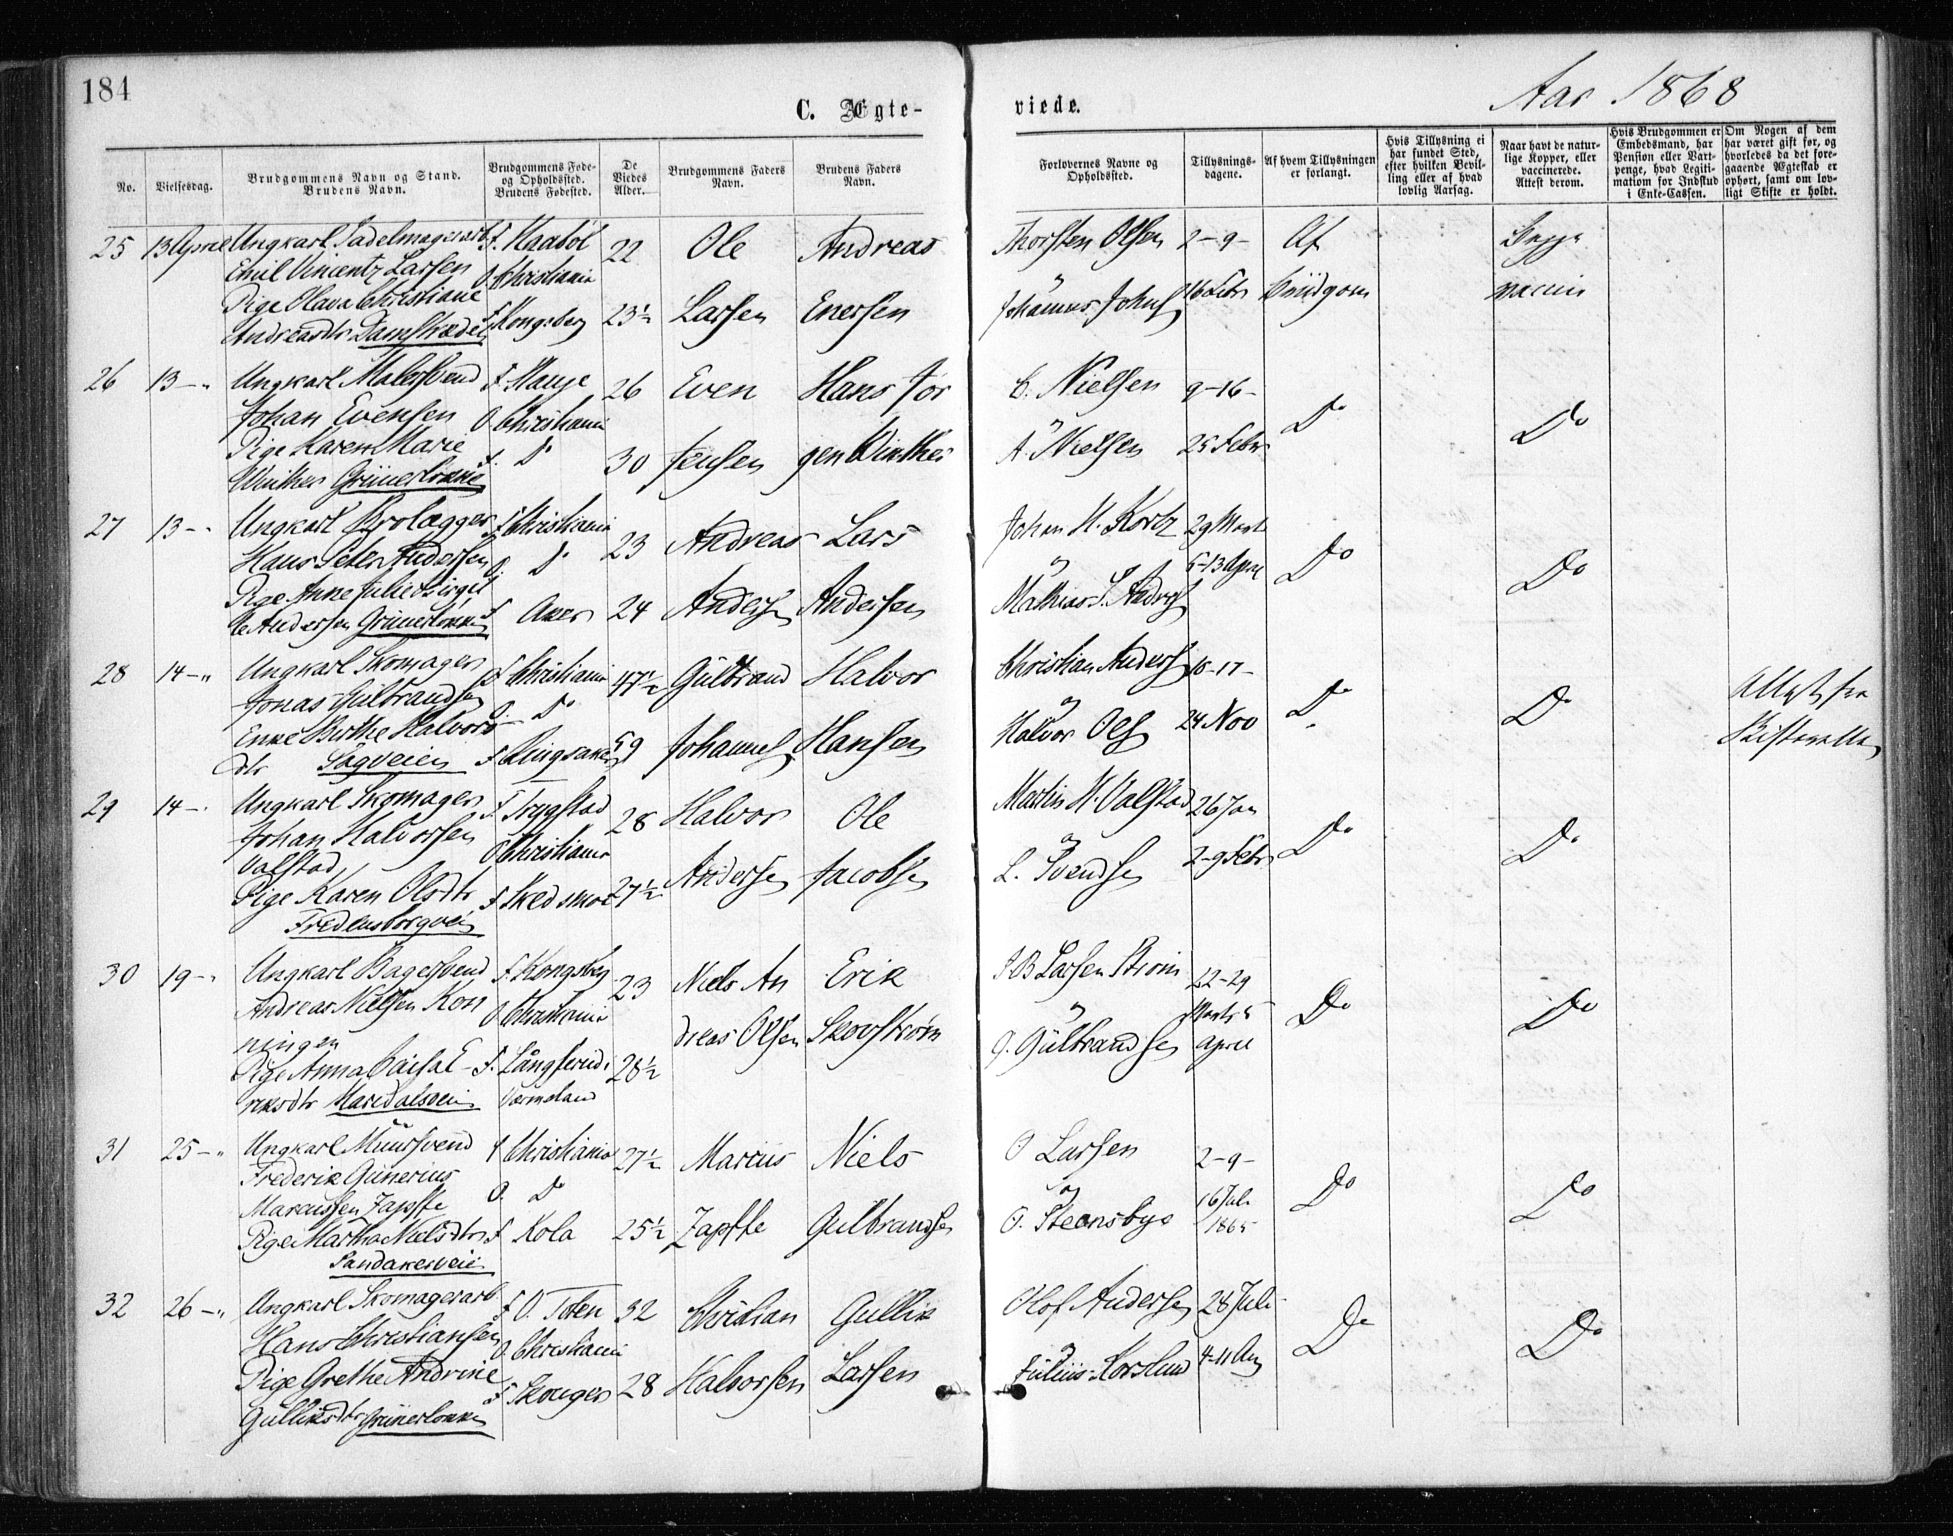 184
C. Ægte-
viede.
Aar 1868
No.
Vielsesdag.
Brudgommens Navn og Stand.
Brudens Navn.
Brudgommens Føde-
og Opholdssted.
Brudens Fødested.
De
Viedes
Alder.
Brudgommens Faders
Navn.
Brudens Faders
Navn.
Forlovernes Navne og
Opholdssted.
Tillysnings-
dagene.
Af hvem Tillysningen
er forlangt.
Hvis Tillysning ei
har fundet Sted,
efter hvilken Bevil-
ling eller af hvad
lovlig Aarsag.
Naar havt de natur-
lige Kopper, eller
vaccinerede.
Attest derom.
Hvis Brudgommen er
Embedsmand, har
Pension eller Vart-
penge, hvad Legiti-
mation for Indskud
i Enke-Cassen.
Om Nogen af dem
har været gift før, og
hvorledes da det fore-
gaaende Ægteskab er
ophørt, samt om lov-
ligt Skifte er holdt.
25 13 April Ungkarl Sadelmagerarb F. 22 Ole Andreas Thorsten Olsen 2-9- Af Begge
Emil Vincentz Larsen O Christiania
Pige Olava Christiane F Kongsberg 23½ Larsen Enersen Johannes Johns 16 Febr Brudgom vaccin
Andreasdtr Damstrædet
26 13-" Ungkarl Malersvend F. 26 Even Hans Jør C. Nielsen 9-16-
Johan Evensen O Christiania Do Do
Pige Karen Marie F. Do 30 Jensen gen Winther A. Nielsen 23 Febr
Winther Grünerløkken
27 13-" Ungkarl Brolægger F Christiania 23 Andreas Lars Johan H. 29 Marts
Hans Peter Andersen O. Do 5-13 April Do Do
Pige Anne Julie Birgit F Aker 24 Anders Andersen Mathias
te Andersen Grünerløkken
28 14-" Ungkarl Skomager F Christiania 47½ Gulbrand Halvor Christian Anders 10-17-
Jonas Gulbrandsen O. Do Do Do Attest fra
Enke Birthe Halvors F Ringsaker 59 Johannes Hansen Halvor Ols 24 Nov Skifteretten
dtr Sagveien
29 14-" Ungkarl Skomager F. Trygstad 28 Halvor Ole Martin H. Valstad 26 Jan
Johan Halvorsen O Christiania Do Do
Valstad 2-9 Febr
Pige Karen Olsdtr F Skedsmo 27½ Andersen Jacobsen L. Svendsen
Fredensborgvei
30 19-" Ungkarl Bagersvend F. Kongsberg 23 Niels An Erik Larsen Strøm 22-29
Andreas Nielsen Kon O Christiania Marts 5 Do Do
ningen dreas Olsen Skovstrøm
Pige Anna E F. Långserud i 28½ Gulbrandsen April
riksdtr Maridalsvei Vermeland
31 25-" Ungkarl Muursvend F Christiania 27½ Marcus Niels O Larsen 2-9-
Frederik Gunerius O. Do Do Do
Marcussen Zapffe 16 Juli
Pige Martha Nielsdtr F Kola 25½ Zapffe Gulbrandsen O. Steensbye 1865
Sandakerveien
32 26-" Ungkarl Skomagerarb F O. Toten 32 Christian Gullik Olof Andersen 28 Juli
Hans Christiansen O. Christiania Do Do
Pige Grethe Andrine F Skouger 28 Halvorsen Larsen Julius Korslund 4-11 Aug
Gulliksdtr Grünerløkken